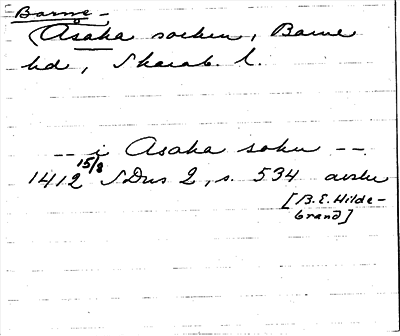 Barne-
(Åsaka socken, Barne
hd, Skarab. l.
-- i Asaka sokn --
1412 15/8 SDns 2, s. 534 avskr
[B.E. Hilde-
brand]